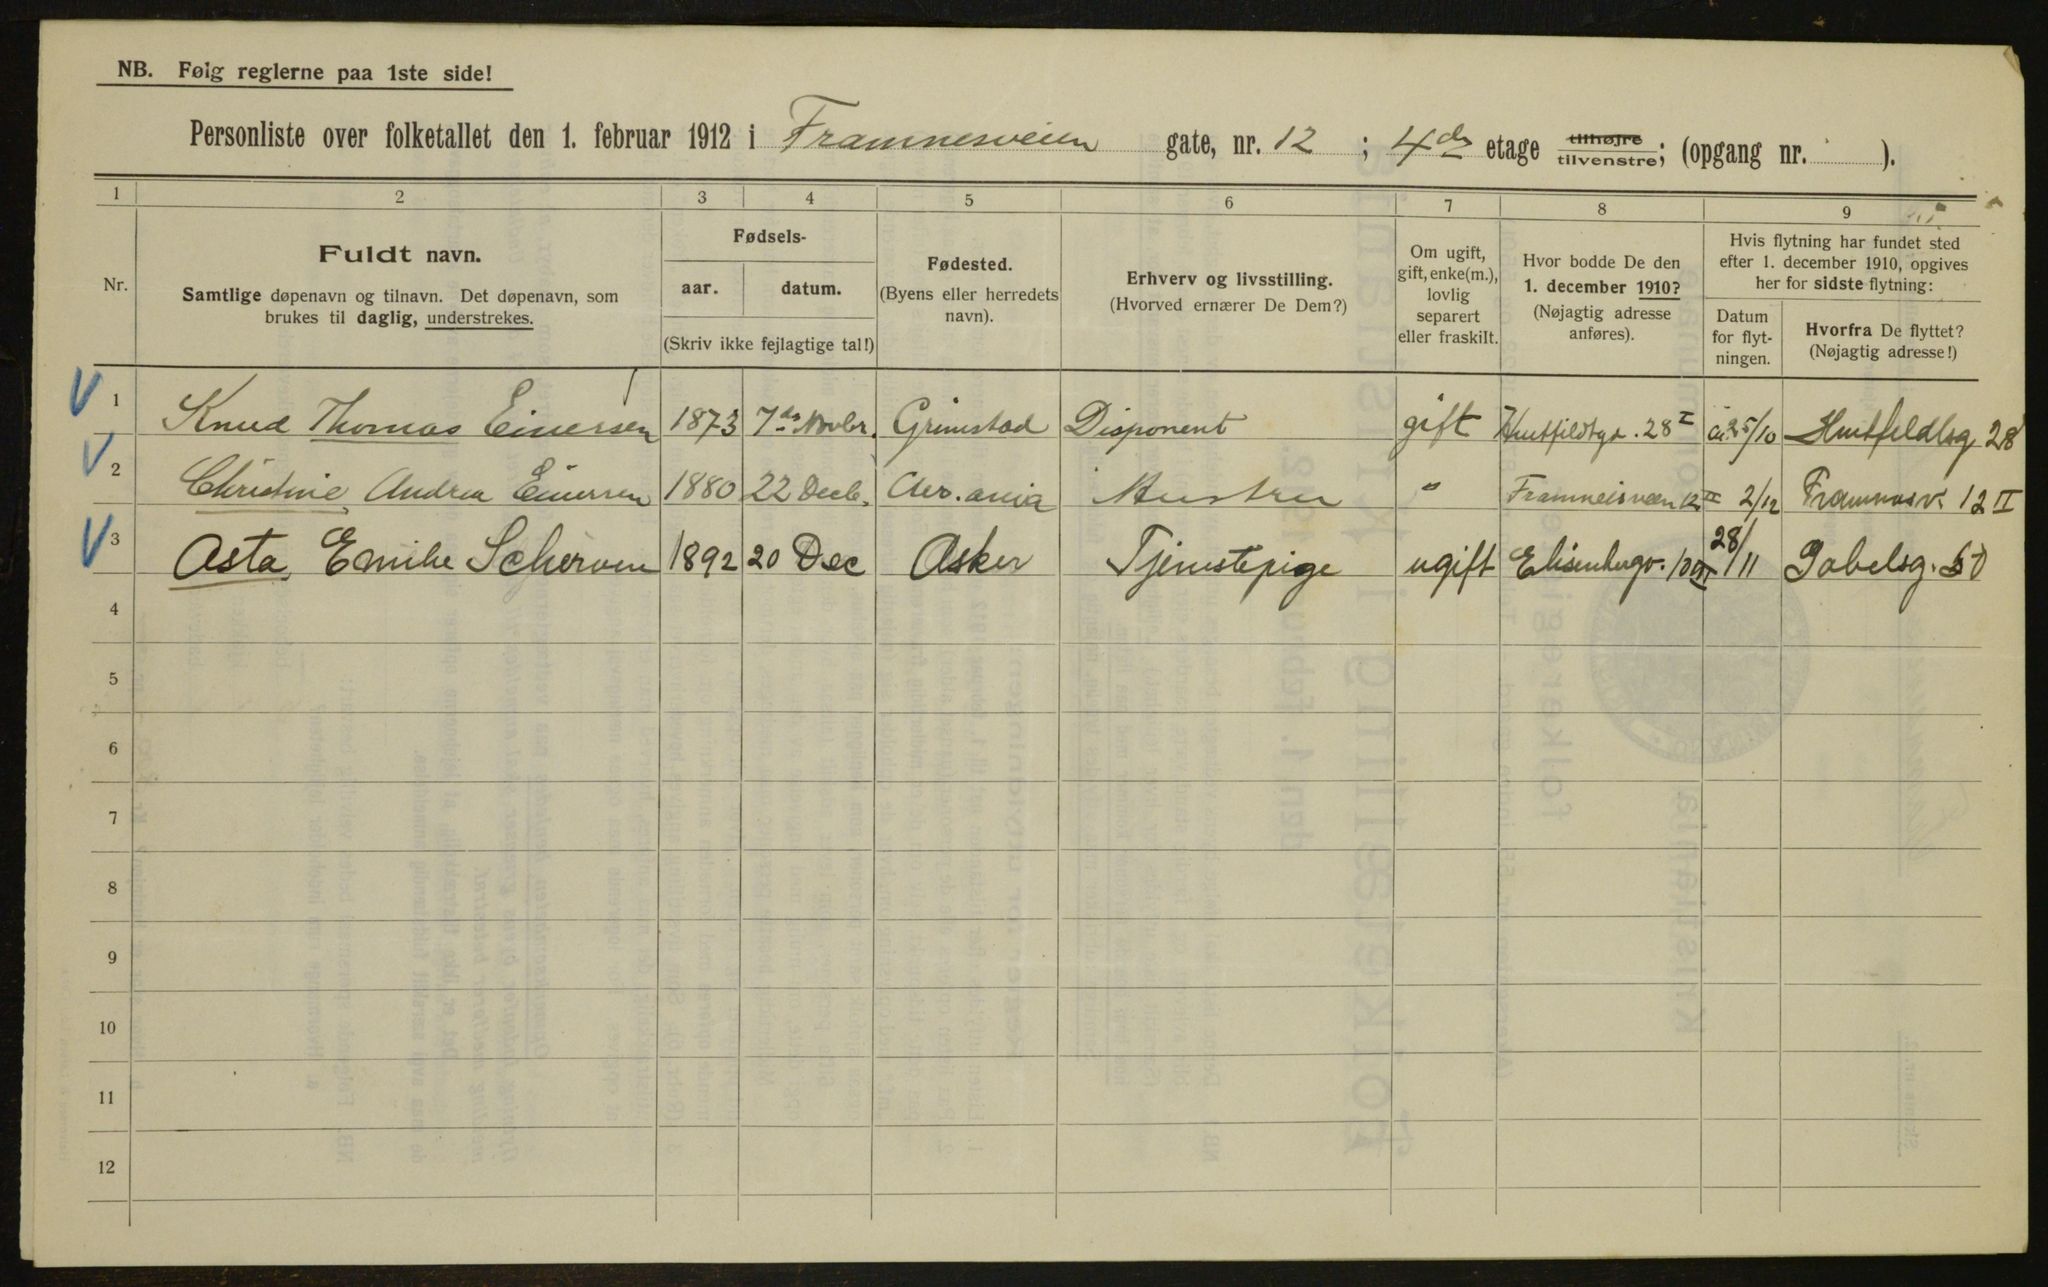 NB. Følg reglerne paa 1ste side!
Personliste over folketallet den 1. februar 1912 i Framnesveien gate, nr. 12 ; 4de etage tilhøjre tilvenstre; (opgang nr. ).
1 2 3 4 5 6 7 8 9
Nr.
Fuldt navn.
Samtlige døpenavn og tilnavn. Det døpenavn, som
brukes til daglig, understrekes.
Fødsels-
aar. datum.
(Skriv ikke fejlagtige tal!)
Fødested.
(Byens eller herredets
navn).
Erhverv og livsstilling.
(Hvorved ernærer De Dem?)
Om ugift,
gift, enke(m.),
lovlig
separert
eller fraskilt.
Hvor bodde De den
1. december 1910?
(Nøjagtig adresse
anføres).
Hvis flytning har fundet sted
efter 1. december 1910, opgives
her for sidste flytning:
Datum
for flyt-
ningen.
Hvorfra De flyttet?
(Nøjagtig adresse!)
1 Knud Thomas Einersen 1873 7de Novbr. Grimstad Disponent gift Huitfeldtgt. 28 I 25/10 Huitfeldtsg 28
2 Christine Andrea Einersen 1880 22 Decb. Chr.ania Hustru " Framnesveien 12 II 2/12 Framnesv. 12 II
3 Asta Emilie Scherven 1892 20 Dec Asker Tjenstepige ugift Elisenbergv. 10 28/11 Gabelsg. 50
4
5
6
7
8
9
10
11
12